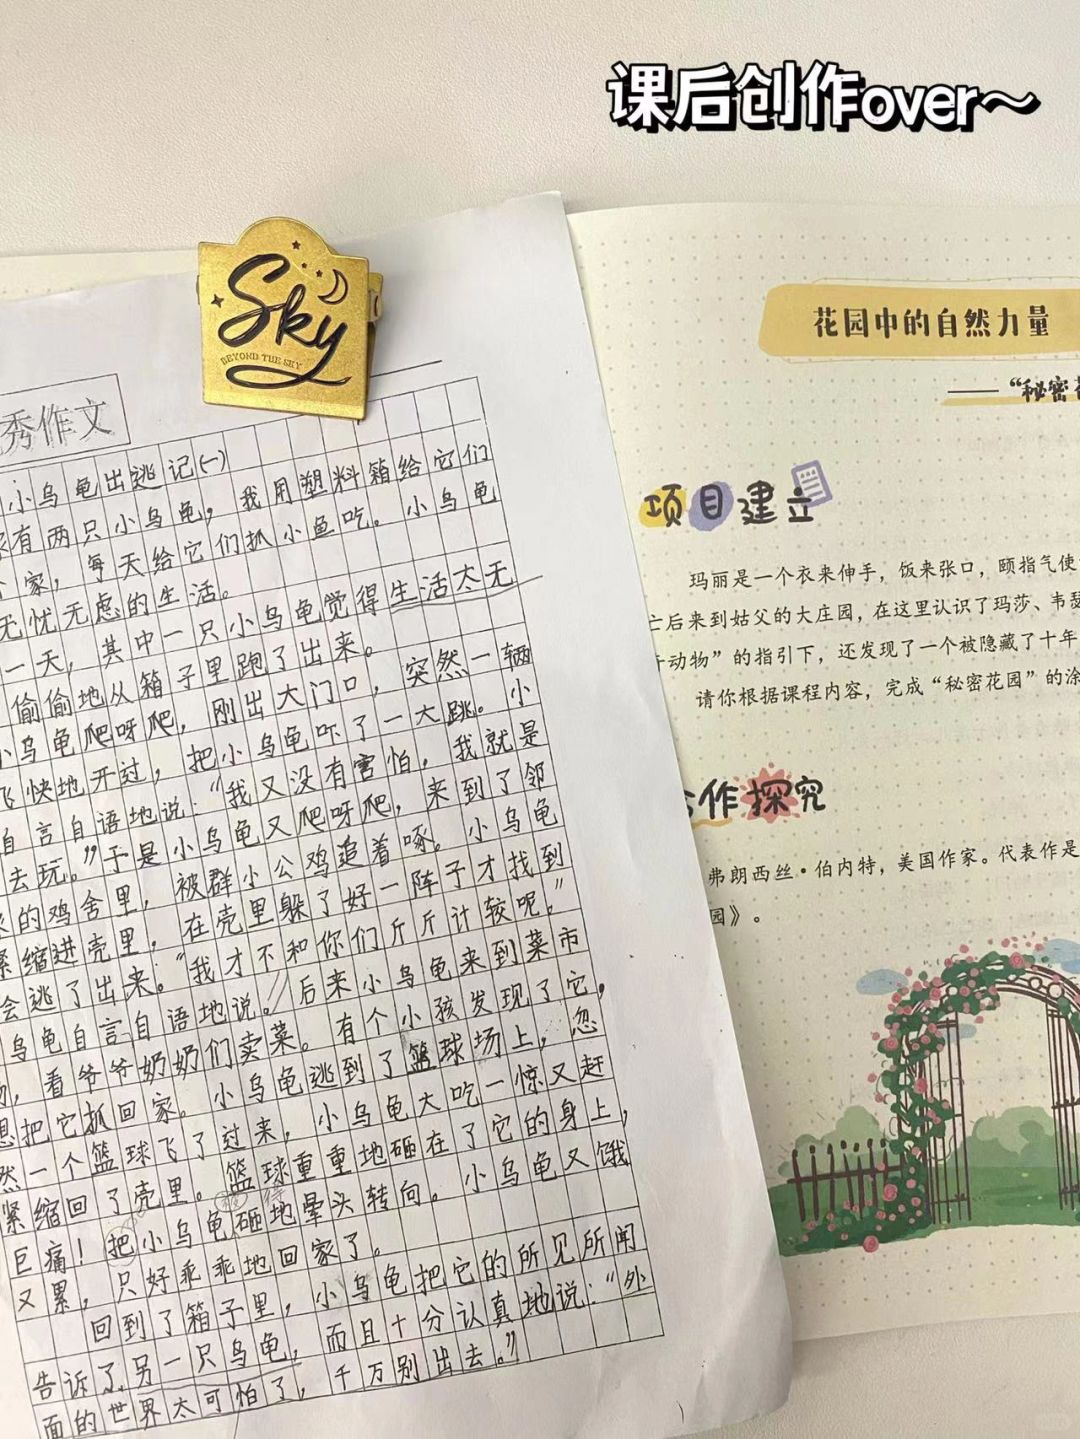 课后创作over～
Sky
BEYOND THE SKY
秀作文
小乌龟出逃记(一)
有两只小乌龟，我用塑料箱给它们
家，每天给它们抓小鱼吃。小乌龟
无忧无虑的生活。
一天，其中一只小乌龟觉得生活太无
偷偷地从箱子里跑了出来。
小乌龟爬呀爬，刚出大门口，突然一辆
飞快地开过，把小乌龟吓了一大跳。小
自言自语地说：“我又没有害怕，我就是
去玩。”于是小乌龟又爬呀爬，来到了邻
的鸡舍里，被群小公鸡追着啄。小乌龟
紧缩进壳里，在壳里躲了好一阵子才找到
会逃了出来。“我才不和你们斤斤计较呢。”
乌龟自言自语地说。后来小乌龟来到菜市
，看爷爷奶奶们卖菜。有个小孩发现了它，
想把它抓回家。小乌龟逃到了篮球场上，忽
然一个篮球飞了过来，小乌龟大吃一惊又赶
紧缩回了壳里。篮球重重地砸在了它的身上，
巨痛！把小乌龟砸地晕头转向。小乌龟又饿
又累，只好乖乖地回家了。
回到了箱子里，小乌龟把它的所见所闻
告诉了另一只乌龟，而且十分认真地说：“外
面的世界太可怕了，千万别出去。”
花园中的自然力量
——“秘密
项目建立
玛丽是一个衣来伸手，饭来张口，颐指气使
亡后来到姑父的大庄园，在这里认识了玛莎、韦
动物”的指引下，还发现了一个被隐藏了十年
请你根据课程内容，完成“秘密花园”的涂
合作探究
弗朗西丝·伯内特，美国作家。代表作是
园》。